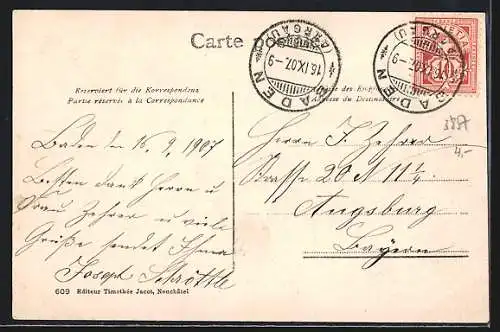 Carte
BADEN
(AARGAU)
16.IX.07.-9
BADEN
(AARGAU)
16.IX.07.-9
10
Reserviert für die Korrespondenz
Partie réservée à la Correspondance
Adresse du Destinataire
3887
4,-
Baden den 16/9 1907
Besten dank Herrn u
Frau Zehrer u viele
Grüße sendet Ihnen
Joseph Schröttle
Herrn J. Zehrer
Strasse 20 N 11 1/4
Augsburg
Bayern
609 Editeur Timothée Jacot, Neuchâtel